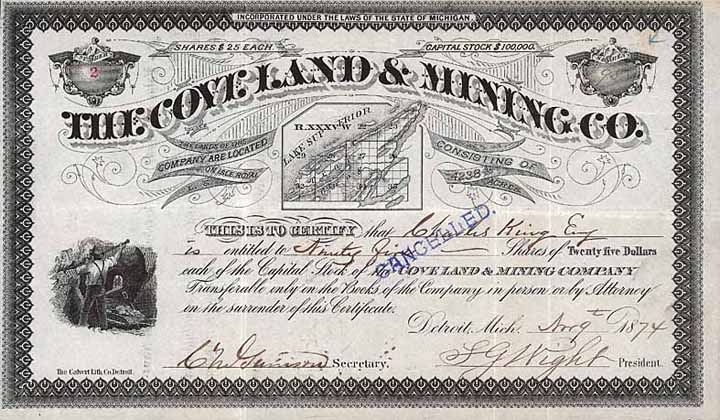 INCORPORATED UNDER THE LAWS OF THE STATE OF MICHIGAN
SHARES $25 EACH. CAPITAL STOCK $100,000.
2
THE COVE LAND & MINING CO.
THE LANDS OF THE
COMPANY ARE LOCATED
ON ISLE ROYAL
CONSISTING OF
4238
ACRES
R.XXXV W
LAKE SUPERIOR
THIS IS TO CERTIFY that Charles King Esq
is entitled to Ninety Five Shares of Twenty five Dollars
each of the Capital Stock of THE COVE LAND & MINING COMPANY
Transferable only on the Books of the Company in person or by Attorney
on the surrender of this Certificate.
CANCELLED.
Detroit, Mich. Nov 9th 1874
Secretary. President.
The Calvert Lith. Co. Detroit.